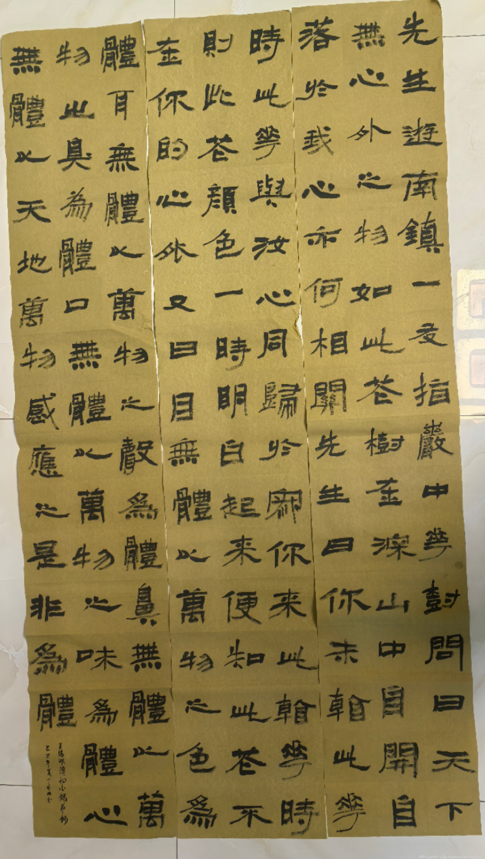 先生遊南鎮一友指巖中華樹問曰天下
無心外之物如此花樹在深山中自開自
落於我心亦何相關先生曰你未看此華
時此華與汝心同歸於寂你來此看華時
則此花顏色一時明白起來便知此花不
在你的心外又曰目無體以萬物之色為
體耳無體以萬物之聲為體鼻無體以萬
物之臭為體口無體以萬物之味為體心
無體以天地萬物感應之是非為體